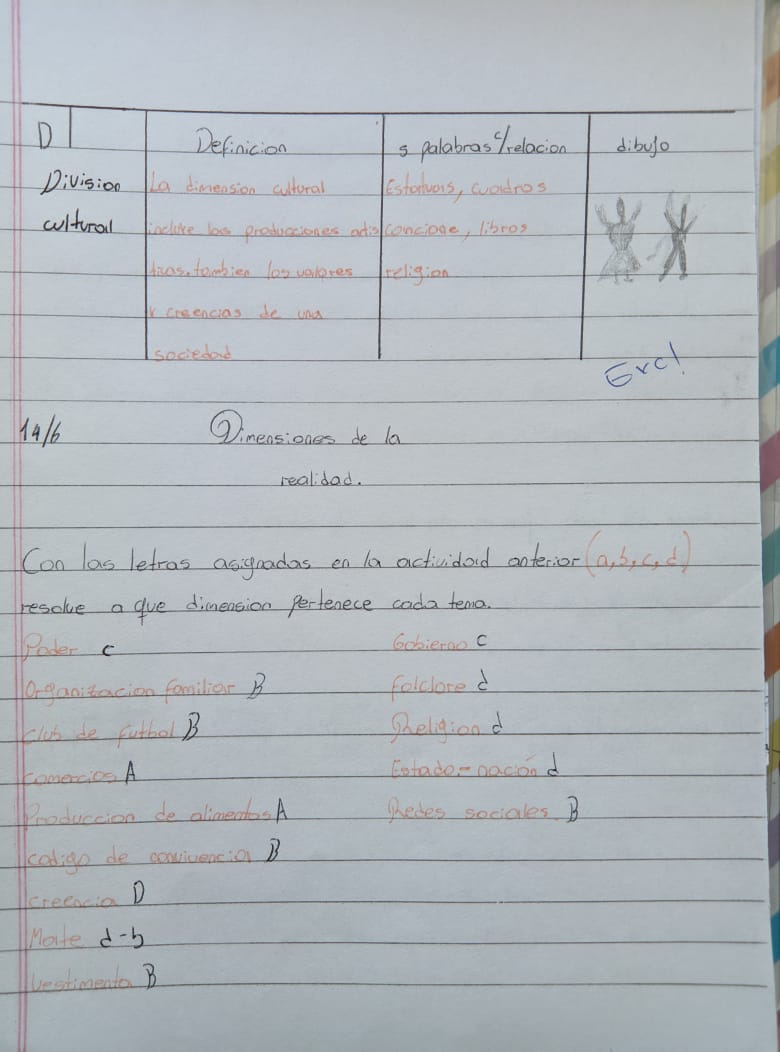 D
Definicion
5 palabras c/relacion
dibujo
Division
cultural
La dimension cultural
incluye las producciones artis
ticas. tambien los valores
y creencias de una
sociedad
Estatuas, cuadros
, libros
religion
Exc!
14/6
Dimensiones de la
realidad.
Con las letras asignadas en la actividad anterior (a,b,c,d)
resolve a que dimension pertenece cada tema.
Poder c
Organitacion familiar B
Club de futbol B
Comercios A
Produccion de alimentos A
codigo de convivencia B
creencia D
Mate d-b
Vestimenta B
Gobierno c
folclore d
Religion d
Estado-nación d
Redes sociales B